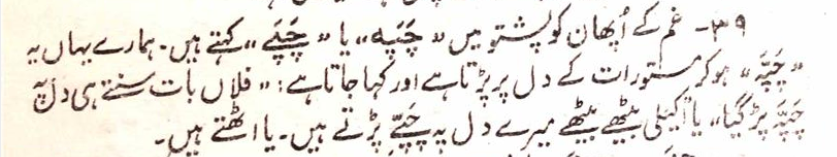 ۳۹۔ غم کے اُپھان کو پشتو میں "چَپَہ" یا "چَپَے" کہتے ہیں۔ ہمارے یہاں یہ
"چَپّہ" ہو کر مستورات کے دل پر پڑتا ہے اور کہا جاتا ہے: "فلاں بات سنتے ہی دل پہ
چَپّہ پڑ گیا" یا اکیلی بیٹھے بیٹھے میرے دل پہ چَپّے پڑتے ہیں۔ یا اٹھتے ہیں۔